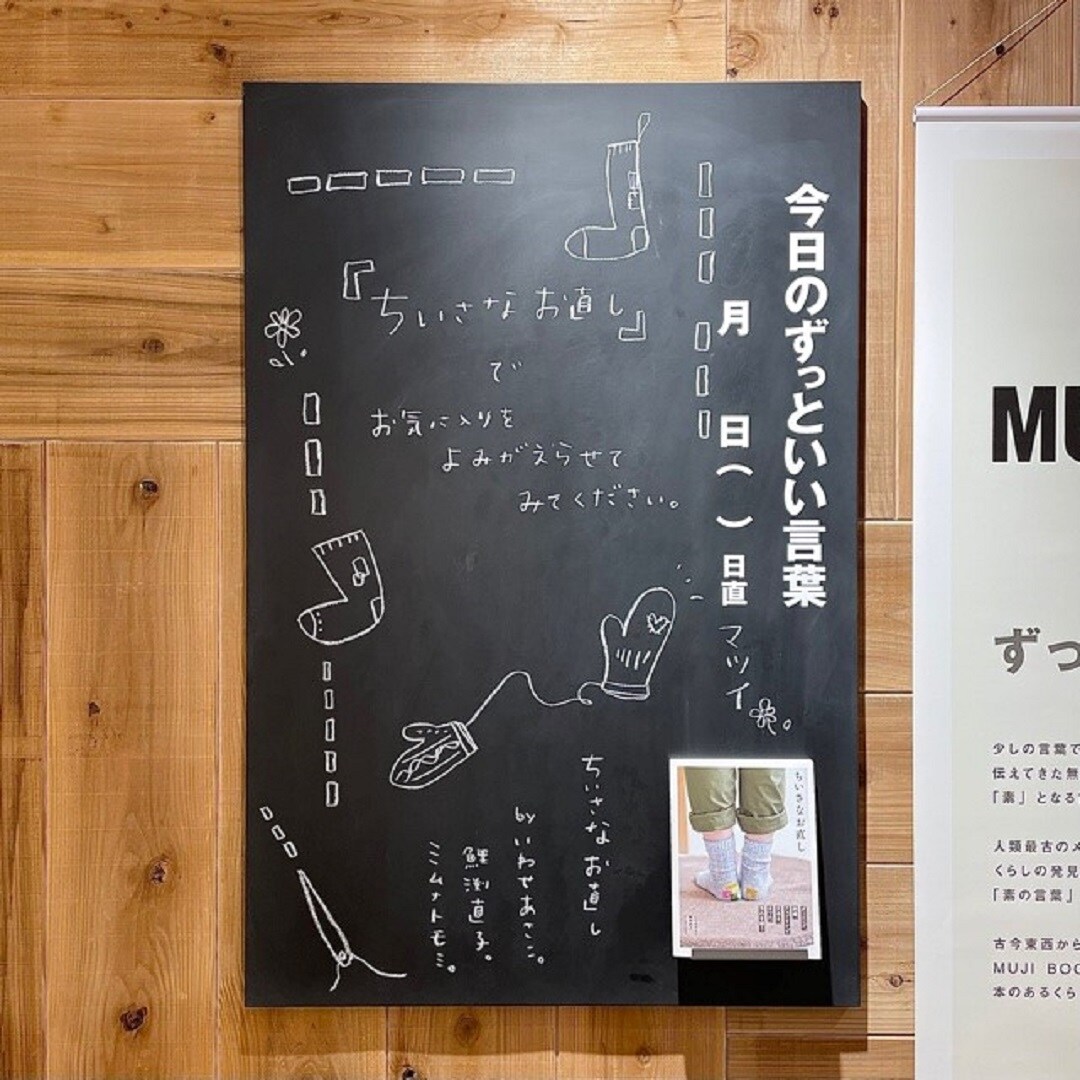 今日のずっといい言葉
月 日( ) 日直 マツイ
『ちいさなお直し』
で
お気に入りを
よみがえらせて
みてください。
ちいさなお直し
by いわせあさこ。
鰈渕直子。
ミミムナトモミ。
ちいさなお直し
MU
ずっ
少しの言葉で
伝えてきた無
「素」となる
人類最古のメ
くらしの発見
「素の言葉」
古今東西から
MUJI BOO
本のあるくら